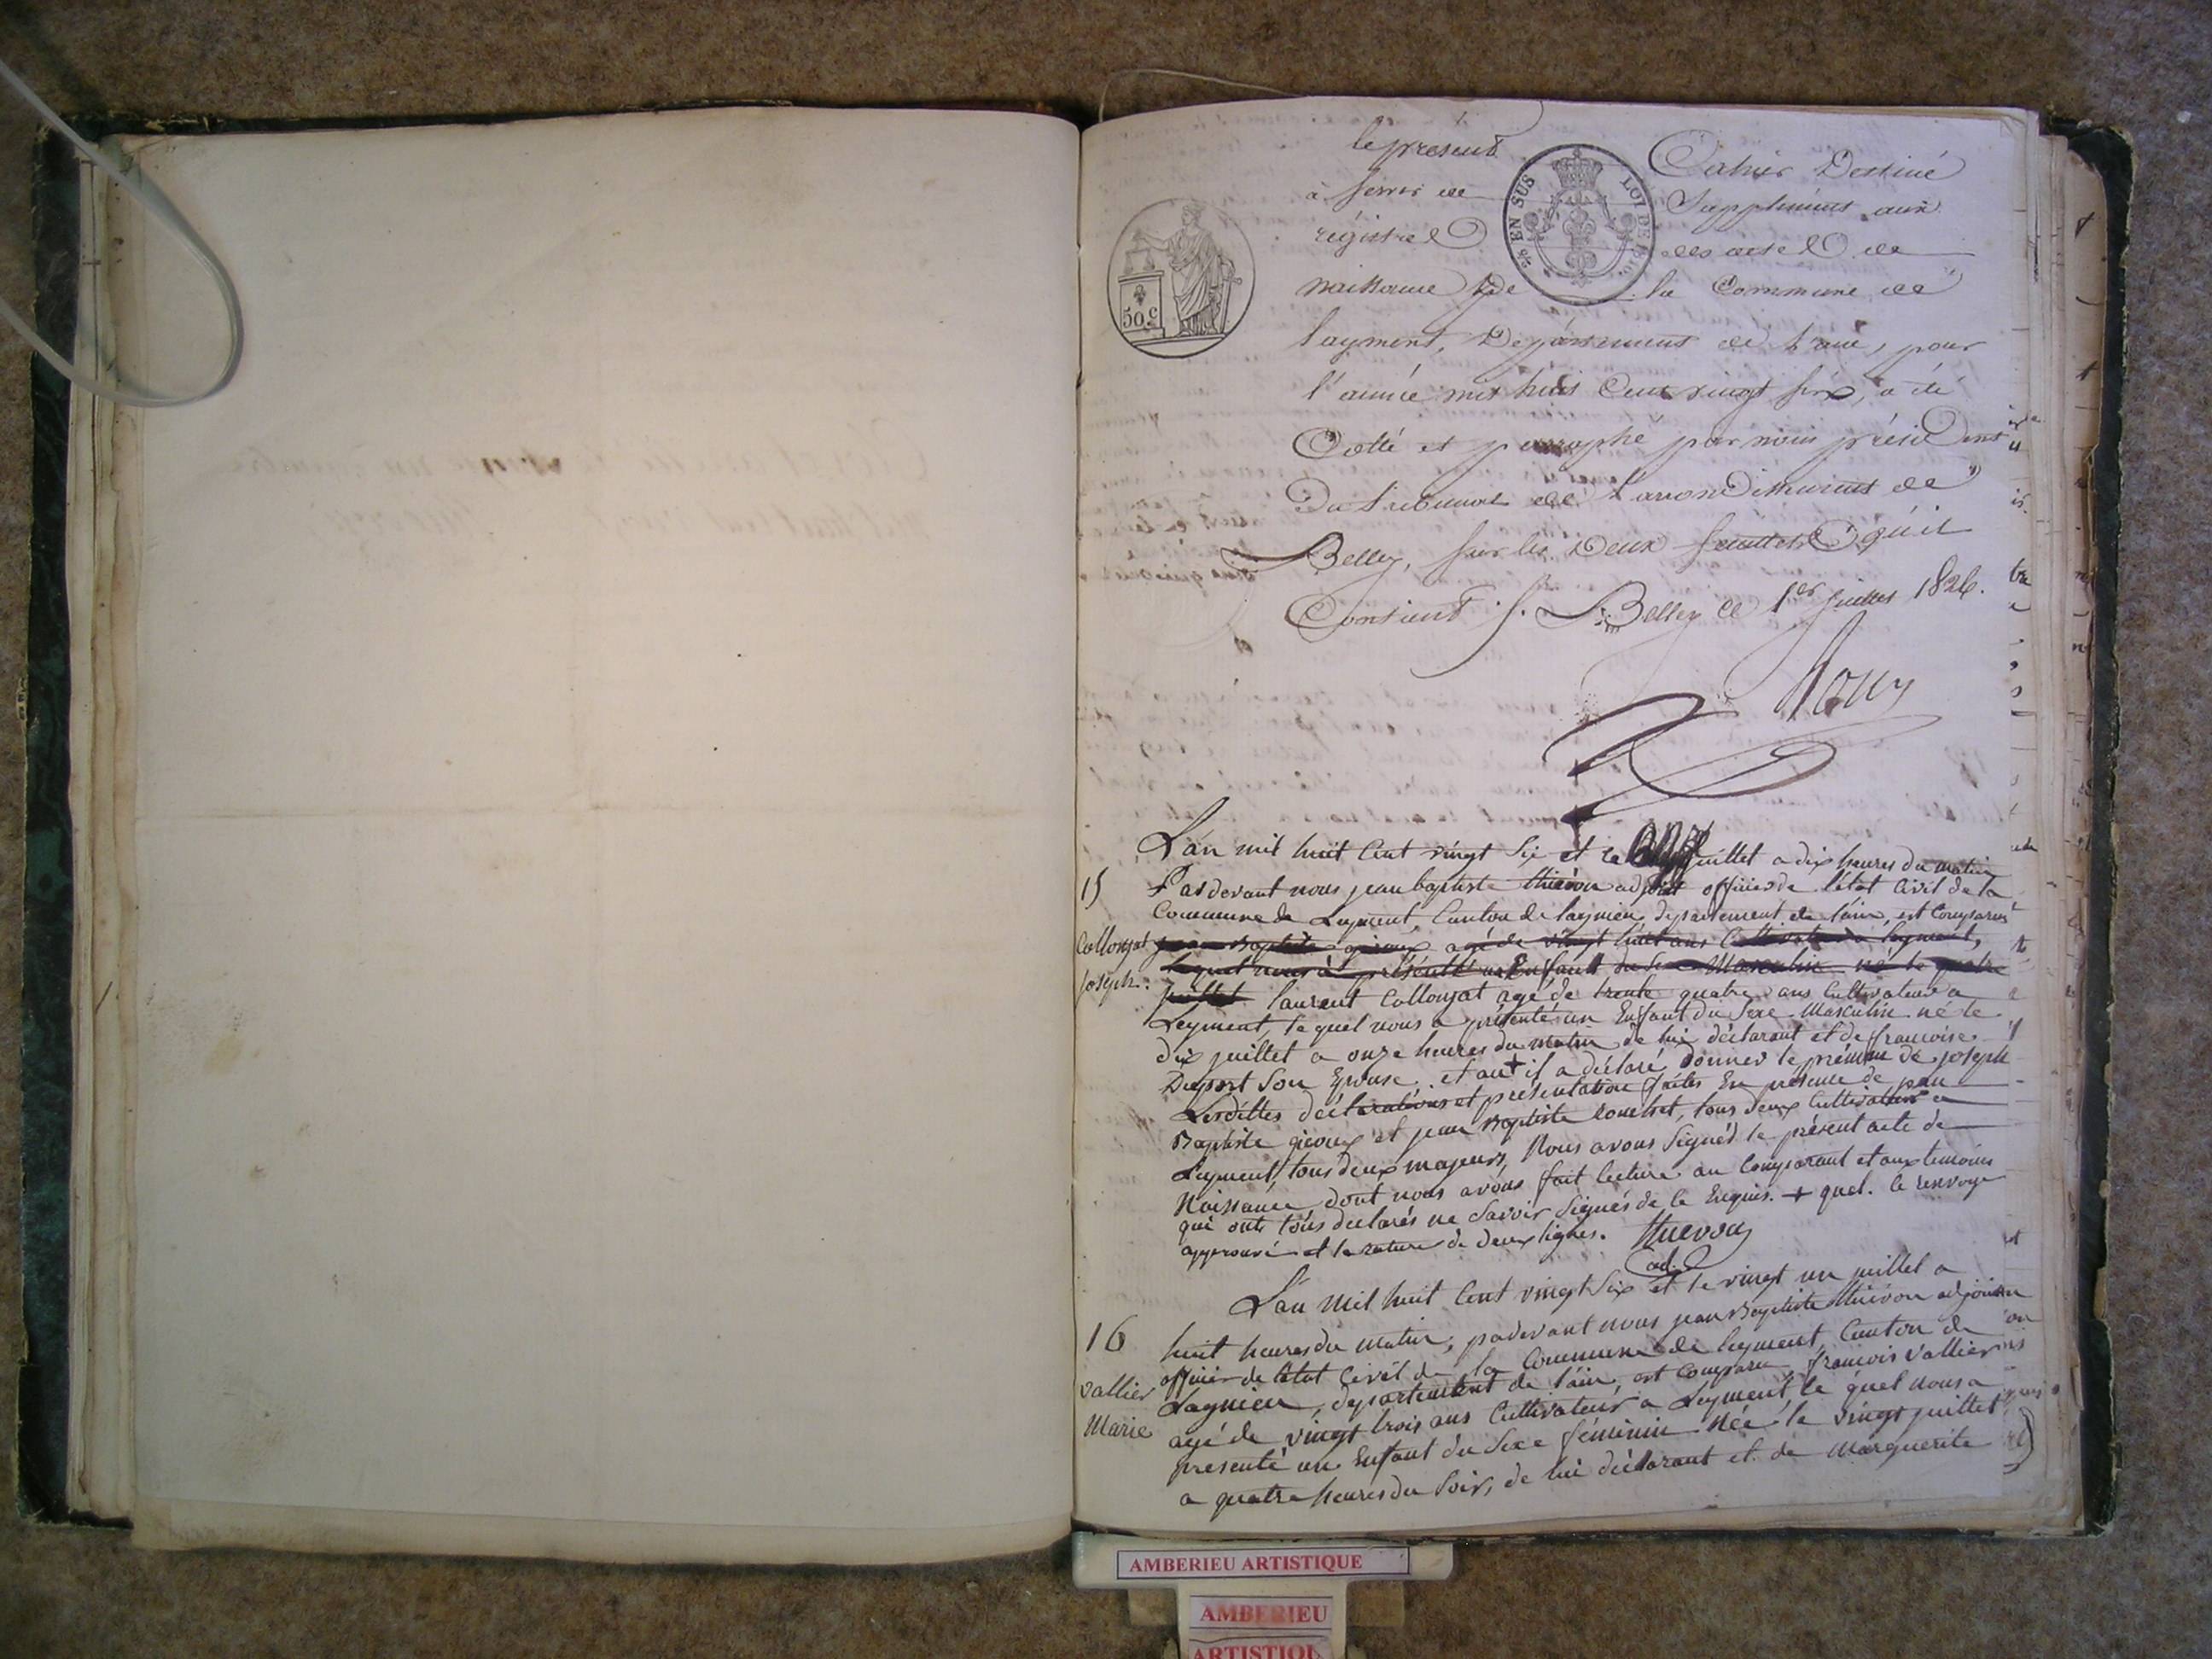 le présent
Cahier Destiné
à servir de
Suppliment aux
régistres
des actes de
naissance de la Commune de
Leyment, Département de l'ain, pour
l'année mil huit Cent vingt six, a été
Cotté et paraphé par nous président
Du tribunal de l'arrondissement de
Belley, sur les Deux feuillets qu'il
Contient. Belley le 1er juillet 1826.
2/10 EN SUS
LOI DE
50 c
L'an mil huit Cent vingt Six et le juillet a dix heures du matin
15
Pardevant nous jean baptiste thiévon adjoint officier de l'état Civil de la
Commune de Leyment, Canton de lagnieu, departement de l'ain, est Comparut
Collonjat
jean Baptiste giroux agé de vingt huit ans Cultivateur a leyment,
lequel nous a présenté un Enfant du Sexe Masculin né le quatre
joseph.
juillet laurent Collonjat agé de trente quatre ans Cultivateur a
Leyment, le quel nous a présenté un Enfant du Sexe Masculin né le
dix juillet a onze heures du matin de lui déclarant et de francoise
Duport Son Epouse, et au + il a déclaré donner le prénom de joseph
Lesdittes déclarations et présentation faites En présence de jean
Baptiste giroux et jean Baptiste , tous deux Cultivateurs a
Leyment, tous deux majeurs, Nous avons Signés le présent acte de
Naissance dont nous avons fait lecture au Comparant et aux temoins
qui onts tous declarés ne Savoir Signés de le Enquis. + quel. le renvoye
approuvé et la rature de deux lignes. thievon
ad.
L'an Mil huit Cent vingt Six et le vingt un juillet a
16
huit heures du matin, padevant nous jean Baptiste thiévon adjoint
officier de l'état Civil de la Commune de leyment, Canton de
vallier
Lagnieu, departement de l'ain, est Comparu, francois vallier
Marie
agé de vingt trois ans Cultivateur a Leyment, le quel nous a
presenté un Enfant du Sexe féminin Née le vingt juillet
a quatre heures du Soir, de lui déclarant et de Marguerite
AMBERIEU ARTISTIQUE
AMBERIEU
ARTISTIQU